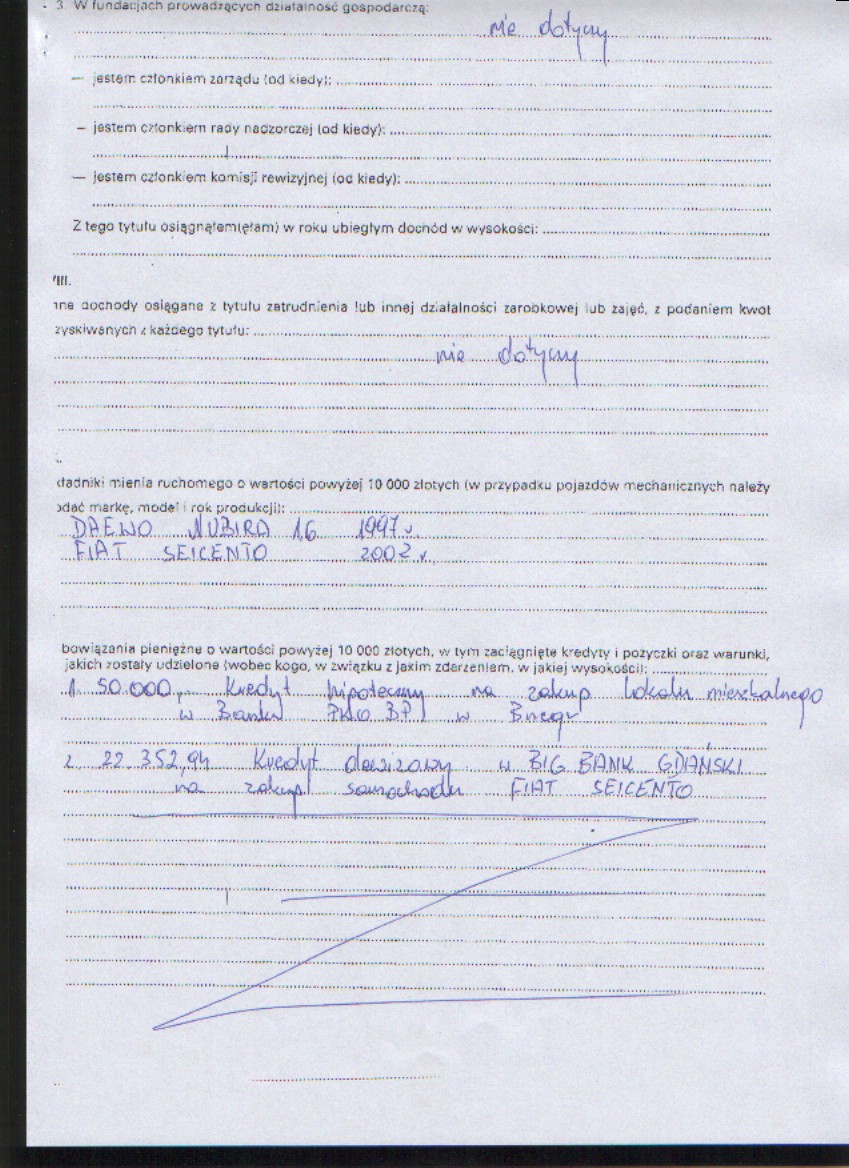 3. W fundacjach prowadzących działalność gospodarczą:
nie dotyczy
— jestem członkiem zarządu (od kiedy):
– jestem członkiem rady nadzorczej (od kiedy):
— jestem członkiem komisji rewizyjnej (od kiedy):
Z tego tytułu osiągnąłem(ęłam) w roku ubiegłym dochód w wysokości:
VIII.
nne dochody osiągane z tytułu zatrudnienia lub innej działalności zarobkowej lub zajęć, z podaniem kwot
zyskiwanych z każdego tytułu:
nie dotyczy
kładniki mienia ruchomego o wartości powyżej 10 000 złotych (w przypadku pojazdów mechanicznych należy
odać markę, model i rok produkcji):
DAEWO NUBIRA 1.6 1997 r.
FIAT SEICENTO 2002 r.
bowiązania pieniężne o wartości powyżej 10 000 złotych, w tym zaciągnięte kredyty i pożyczki oraz warunki,
jakich zostały udzielone (wobec kogo, w związku z jakim zdarzeniem, w jakiej wysokości):
1. 50.000,- Kredyt hipoteczny na zakup lokalu mieszkalnego
w Banku PKO BP w Brzegu
2. 22.352,94 Kredyt dewizowy w BIG BANK GDAŃSKI
na zakup samochodu FIAT SEICENTO